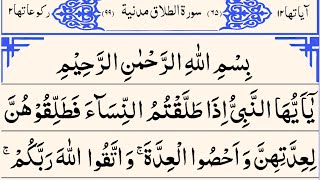 آياتها١٢ (٦٥) سورة الطلاق مدنية (٩٩) ركوعاتها٢
بِسْمِ اللهِ الرَّحْمٰنِ الرَّحِيْمِ
يٰٓاَيُّهَا النَّبِيُّ اِذَا طَلَّقْتُمُ النِّسَآءَ فَطَلِّقُوْهُنَّ
لِعِدَّتِهِنَّ وَاَحْصُوا الْعِدَّةَ ۚ وَاتَّقُوا اللهَ رَبَّكُمْ ۚ